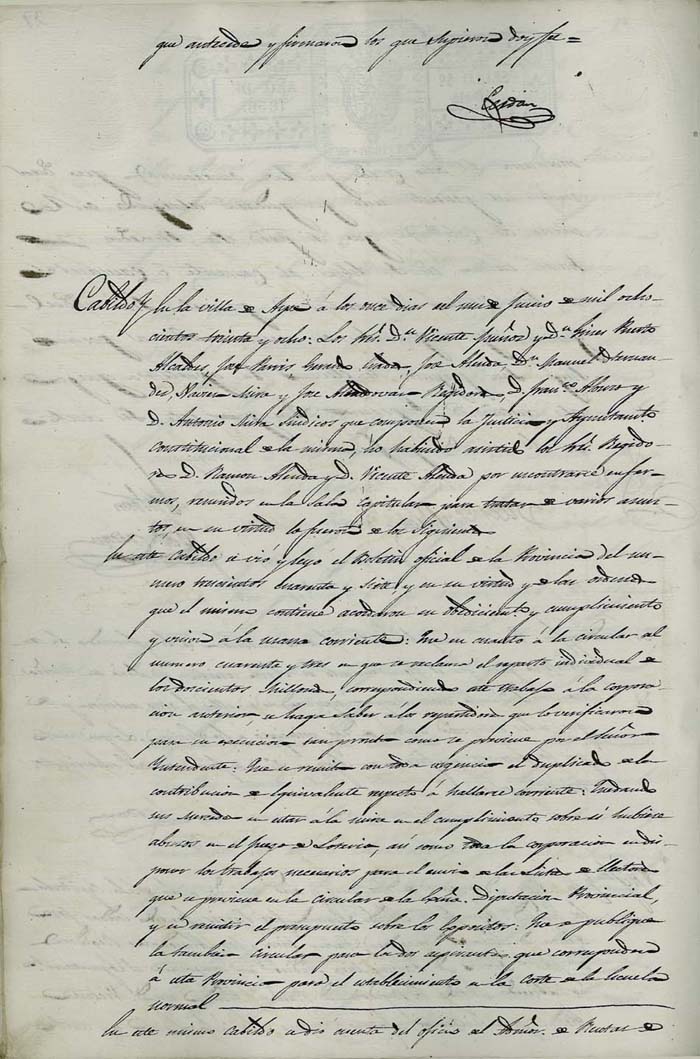 que antecede y firmaron los que supieron doy fe=
Cerdán
Cabildo} En la villa de Aspe á los once dias del mes de Junio de mil ocho-
cientos treinta y ocho: Los Sres. Dn. Vicente Muñoz y Dn. Gines Puerto
Alcaldes, José Pavia Gerardo Cerdá, José Almodóvar, Dn. Manuel Hernan-
dez Navier Mira y José Almodovar Regidores D. Franco. Alonso y
D. Antonio Mira Sindicos que componen la Justicia y Ayuntamto.
Constitucional de la misma, no habiendo asistido los Sres. Regido-
res D. Ramon Almodóvar y D. Vicente por encontrarse enfer-
mos, reunidos en la Sala Capitular para tratar de varios asun-
tos, en su virtud lo fueron de los siguientes
En este Cabildo se vió y leyó el Boletin oficial de la Provincia del nu-
mero trescientos cuarenta y siete y en su virtud y de las ordenes
que el mismo contiene acordaron su obedecimto. y cumplimiento
y union á la mano corriente: Que en cuanto á la circular al
numero cuarenta y tres en que se reclama el reparto individual de
los doscientos Millones, correspondiendo este trabajo á la corpora-
cion anterior se haga saber á los repartidores que lo verificaron
para su execucion tan pronto como se previene por el Señor
Intendente: Que se remita con toda urgencia el duplicado de la
contribucion de Equivalente respecto á hallarse corriente: Quedando
sus mercedes en estar á la mira en el cumplimiento sobre si hubiere
abusos en el juego de Loteria, asi como toda la corporacion en dis-
poner los trabajos necesarios para el envio de las Listas de Electores
que se previene en la circular de la Exma. Diputacion Provincial,
y en remitir el presupuesto sobre los Espositos: Que se publique
la tambien circular para los dos aspirantes que corresponden
á esta Provincia para el establecimiento en la Corte de la escuela
normal
En este mismo Cabildo se dió cuenta del oficio del Admor. de Rentas de